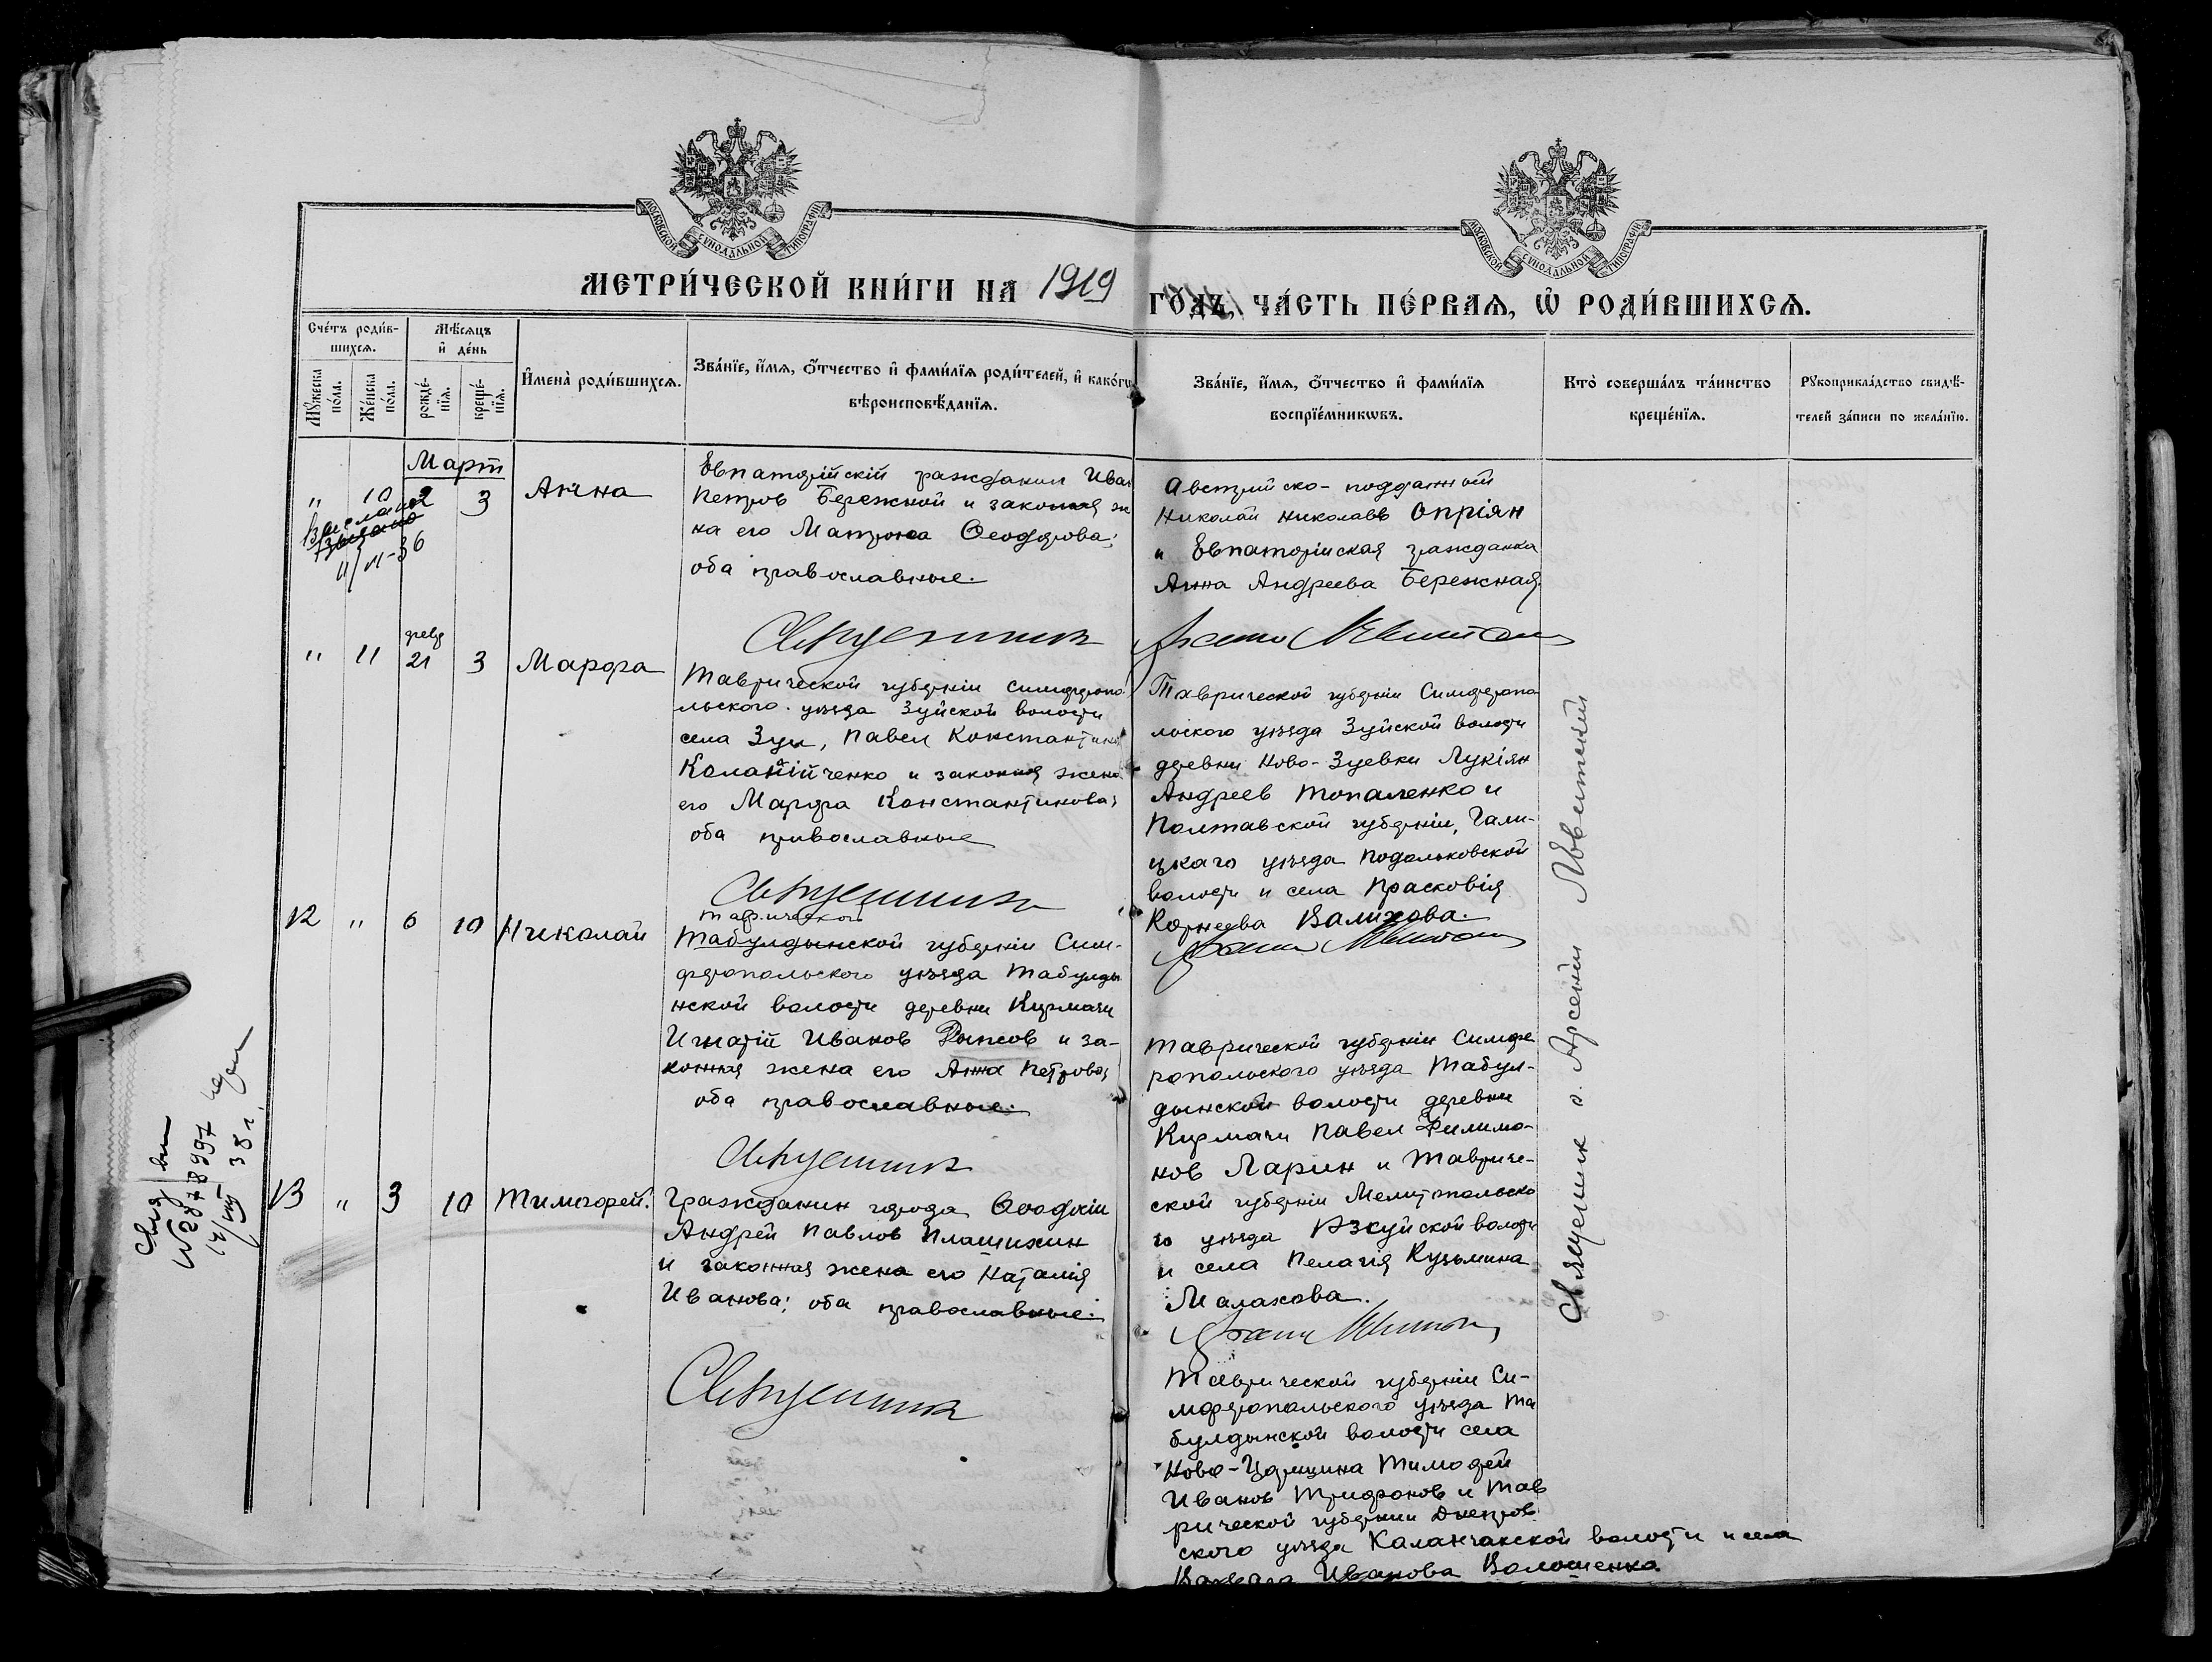 МОСКОВСКОЙ СУНОДАЛЬНОЙ ТИПОГРАФІИ
МОСКОВСКОЙ СУНОДАЛЬНОЙ ТИПОГРАФІИ
МЕТРИ́ЧЕСКОЙ КНИ́ГИ НА 1919 ГО́ДЪ, ЧА́СТЬ ПЕ́РВАѦ, Ѡ РОДИ́ВШИХСѦ.
Сче́тъ роди́в-
шихсѧ.
Мѣ́сѧцъ
и҆ де́нь
Мꙋ́жеска
по́ла.
Же́нска
по́ла.
рожде́-
нїѧ.
креще́-
нїѧ.
И҆мена̀ роди́вшихсѧ.
Зва́нїе, и҆́мѧ, ѻ҆́тчество и҆ фами́лїѧ роди́телей, и҆ како́гѡ
вѣроисповѣ́данїѧ.
Зва́нїе, и҆́мѧ, ѻ҆́тчество и҆ фами́лїѧ
воспрїе́мникѡвъ.
Кто̀ соверша́лъ та́инство
креще́нїѧ.
Рꙋкоприкла́дство свидѣ́-
телей за́писи по жела́нїю.
Март
" 10 2 3 Анна
11/VI-36
Евпаторійскій гражданин Иван
Петров Бережной и законная же
на его Матрона Ѳеодорова;
оба православные.
Австрийско-подданный
Николай Николаев Опріян
и Евпаторійская гражданка
Анна Андреева Бережная.
Священник
" 11 февр 21 3 Марфа
Таврической губерніи Симферопо
льского уѣзда Зуйской волости
села Зуи, Павел Константинов
Коланійченко и законная жена
его Марфа Константинова;
оба православные
Таврической губерніи Симферопо
льского уѣзда Зуйской волости
деревни Ново-Зуевки Лукіян
Андреев Топаленко и
Полтавской губерніи, Гали-
цкаго уѣзда Подольковской
волости и села Прасковія
Корнеева Валихова.
Священник
12 " 6 10 Николай
Таврической
Табулдынской губерніи Сим-
феропольского уѣзда Табулды
нской волости деревни Курмачи
Игнатій Иванов Рыжов и за-
конная жена его Анна Петрова;
оба православные.
Таврической губерніи Симфе
ропольского уѣзда Табул-
дынской волости деревни
Курмачи Павел Филимо-
нов Ларин и Тавриче-
ской губерніи Мелитопольско
го уѣзда Азкуйской волости
и села Пелагія Кузьмина
Малахова.
Священник
№ 2878997
38 г.
13 " 3 10 Тимофей.
Гражданин города Ѳеодосіи
Андрей Павлов Плашихин
и законная жена его Наталія
Иванова; оба православные.
Священник
Таврической губерніи Си-
мферопольского уѣзда Та
булдынской волости села
Ново-Царицина Тимофей
Иванов Трифонов и Тав
рической губерніи Днепров
ского уѣзда Каланчакской волости и села
Варвара Иванова Волошенко.
Священник о. Арсений Левитский